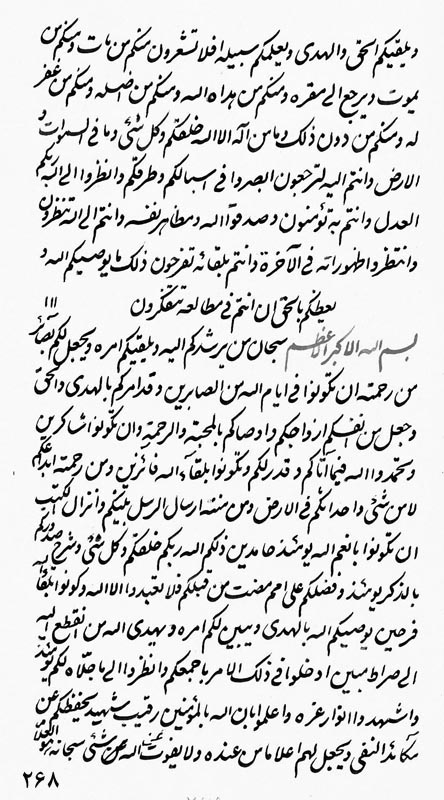 و يلقيكم الحق والهدى و يعلمكم سبيله افلا تشعرون منكم من مات و منكم من
يموت و يرجع الى مقره و منكم من هداه الله و منكم من اضله و منكم من غفر
له و منكم من دون ذلك و ما من اله الا الله خلقكم و كل شئ و ما فى السموات و
الارض و انتم اليه لترجعون ابصروا فى اسبالكم و طرقكم و انظروا الى الله ربكم
العدل و انتم به تؤمنون و صدقوا الله و مظاهر نفسه و انتم الى الله تنظرون
و انتظروا ظهورالله فى الآخرة و انتم بلقائه تفرحون ذلك ما يوصيكم الله و
يعظكم بالحق ان انتم فى مطالعه تتفكرون
١١١
بسم الله الاكبر الاعظم سبحان من يرشدكم اليه و يلقيكم امره و يجعل لكم بصائر
من رحمته ان تكونوا فى ايام الله من الصابرين و قد امركم بالهدى والحق
و جعل من انفسكم ازواجكم و اوصاكم بالمحبة والرحمة و ان تكونوا شاكرين
و تحمدوا الله فيما آتاكم و قدر لكم و تكونوا بلقاء الله فائزين و من رحمته ابدعكم
لا من شئ و احداثكم فى الارض و من منته ارسال الرسل اليكم و انزال الكتب
ان تكونوا بانعم الله يومئذ حامدين ذلكم الله ربكم خلقكم و كل شئ و شرح صدوركم
بالذكر يومئذ و فضلكم على امم مضت من قبلكم فلا تعبدوا الا الله و كونوا بلقائه
فرحين يوصيكم الله بالهدى و يبين لكم امره و يهدى الله من انقطع اليه
الى صراط مبين ادخلوا فى ذلك الامر باجمعكم و انظروا الى ما جلاه لكم يومئذ
و اشهدوا انوار عزه و اعلموا بان الله بالمؤمنين رقيب شهيد يحفظكم عن
مكائد النفى و يجعل لهم اعلاما من عنده و لا يفوت عن الله من شئ سبحانه هو العلام
٢٦٨